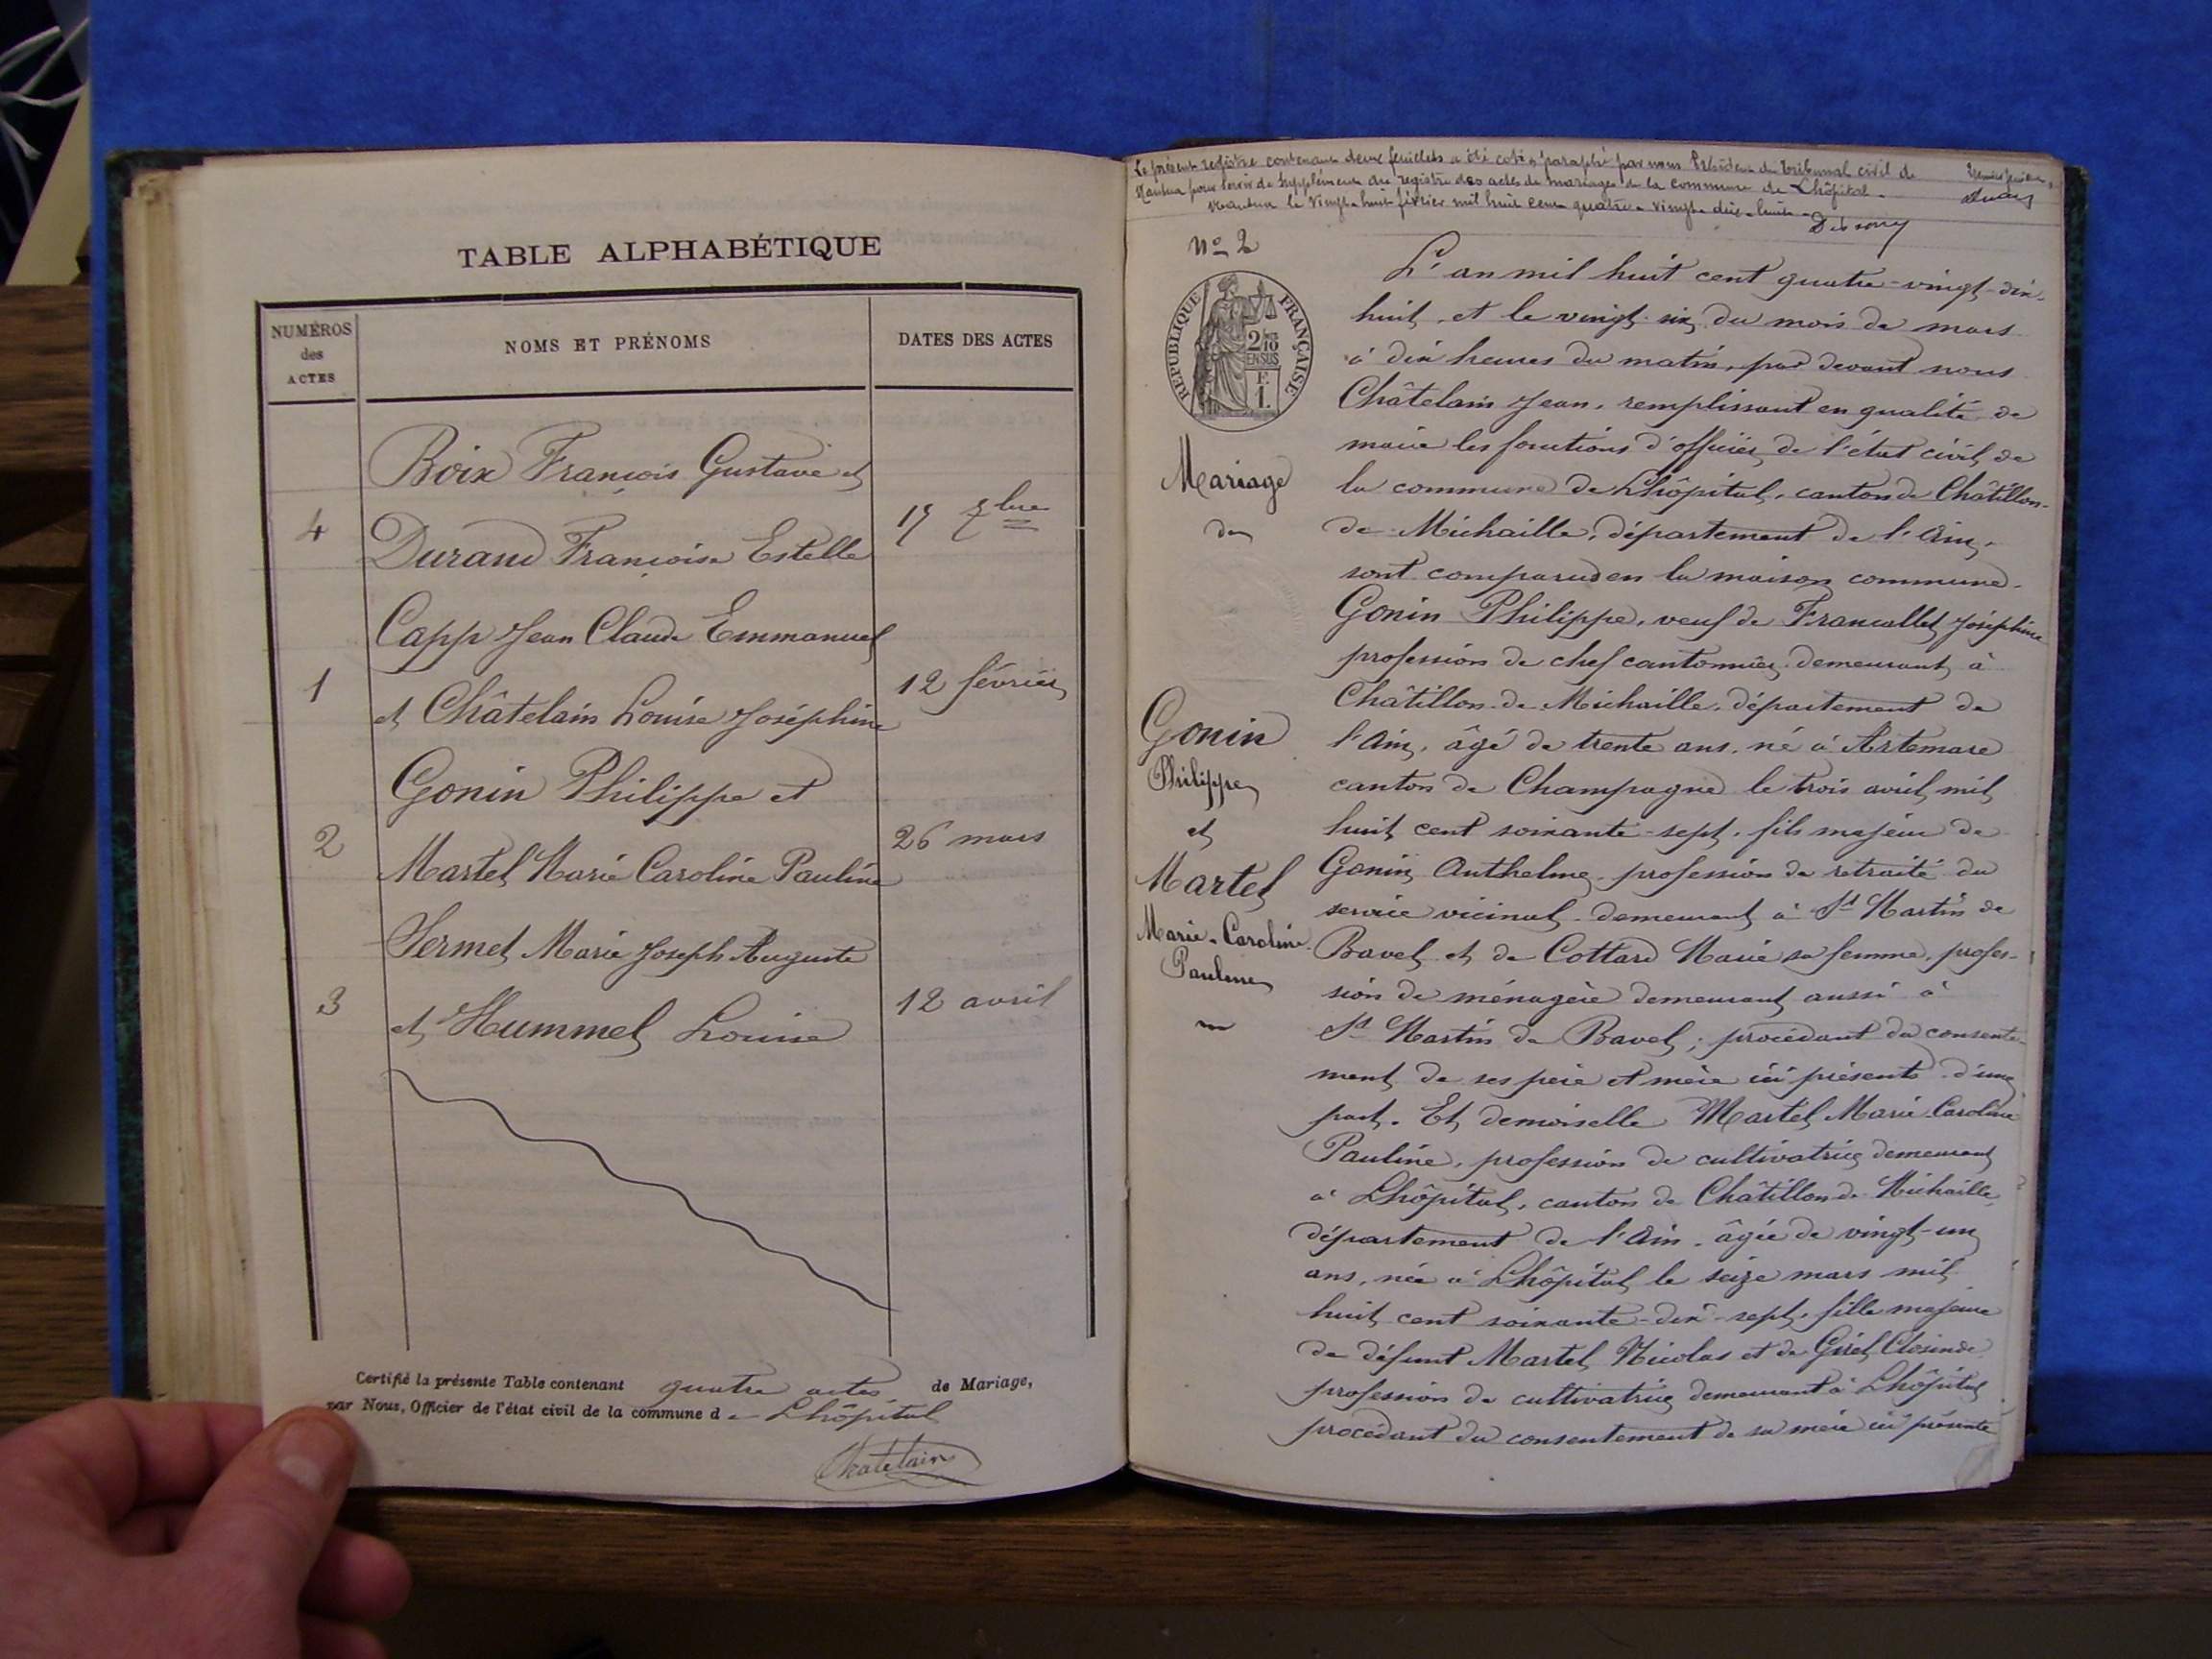 TABLE ALPHABÉTIQUE
NUMÉROS
des
ACTES
NOMS ET PRÉNOMS
DATES DES ACTES
Boix François Gustave et
4
Durand Françoise Estelle
17 7bre
Capp Jean Claude Emmanuel
1
et Châtelain Louise Joséphine
12 février
Gonin Philippe et
2
Martel Marie Caroline Pauline
26 mars
Sermet Marie Joseph Auguste
3
et Hummel Louise
12 avril
Certifié la présente Table contenant quatre actes de Mariage,
par Nous, Officier de l'état civil de la commune de Lhôpital
Chatelain
Le présent registre contenant deux feuillets a été coté et paraphé par nous Président du Tribunal civil de
Nantua pour servir de supplément au registre des actes de mariages de la commune de Lhôpital.
Nantua le vingt-huit février mil huit cent quatre-vingt-dix-huit.
No 2
RÉPUBLIQUE FRANÇAISE
2/10
EN SUS
F.
1.
Mariage
de
Gonin
Philippe
et
Martel
Marie-Caroline
Pauline
L'an mil huit cent quatre-vingt-dix-
huit, et le vingt-six du mois de mars
à dix heures du matin, par devant nous
Châtelain Jean, remplissant en qualité de
maire les fonctions d'officier de l'état civil de
la commune de Lhôpital, canton de Châtillon-
de-Michaille, département de l'Ain,
sont comparus en la maison commune.
Gonin Philippe, veuf de Francallet Joséphine
profession de chef cantonnier demeurant à
Châtillon-de-Michaille, département de
l'Ain, âgé de trente ans, né à Artemare
canton de Champagne le trois avril mil
huit cent soixante-sept, fils majeur de
Gonin Anthelme profession de retraité du
service vicinal demeurant à St Martin de
Bavel et de Cottard Marie sa femme, profes-
sion de ménagère demeurant aussi à
St Martin de Bavel; procédant du consente-
ment de ses père et mère ici présents d'une
part. Et demoiselle Martel Marie Caroline
Pauline, profession de cultivatrice demeurant
à Lhôpital, canton de Châtillon-de-Michaille,
département de l'Ain, âgée de vingt-un
ans, née à Lhôpital le seize mars mil
huit cent soixante-dix-sept, fille majeure
de défunt Martel Nicolas et de Girel Closinde
profession de cultivatrice demeurant à Lhôpital
procédant du consentement de sa mère ici présente